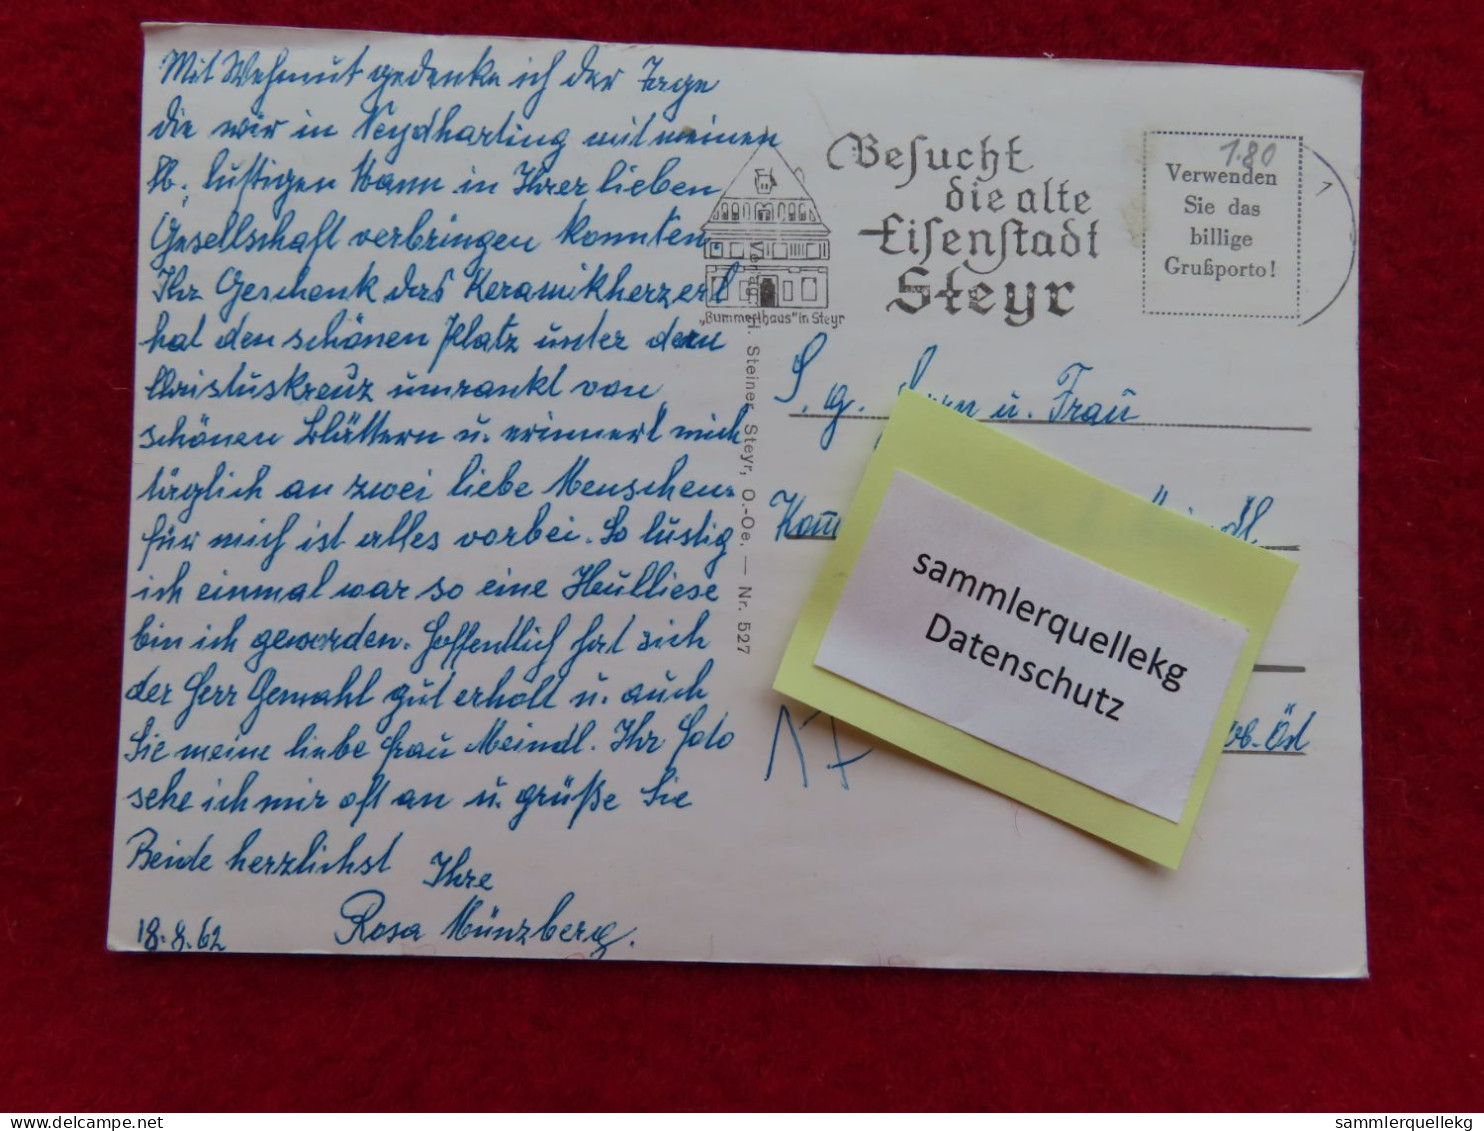 Mit Wehmut gedenke ich der Tage
die wir in Neydharting mit meinen
lb. lustigen Mann in Ihrer lieben
Gesellschaft verbringen konnten.
Ihr Geschenk das Keramikherzerl
hat den schönen Platz unter dem
Christuskreuz umrankt von
schönen Blättern u. erinnert mich
täglich an zwei liebe Menschen.
für mich ist alles vorbei. So lustig
ich einmal war so eine Heulliese
bin ich geworden. Hoffentlich hat sich
der Herr Gemahl gut erholt u. auch
Sie meine liebe Frau Meindl. Ihr Foto
sehe ich mir oft an u. grüße Sie
Beide herzlichst Ihre
Rosa Münzberg.
18.8.62
Besucht
die alte
Eisenstadt
Steyr
„Bummerlhaus" in Steyr
1.80
Verwenden
Sie das
billige
Grußporto!
Verlag H. Steiner, Steyr, O.-Oe. — Nr. 527
S. g. Herrn u. Frau
Meindl
17
Öst
sammlerquellekg
Datenschutz
delcampe.net
sammlerquellekg